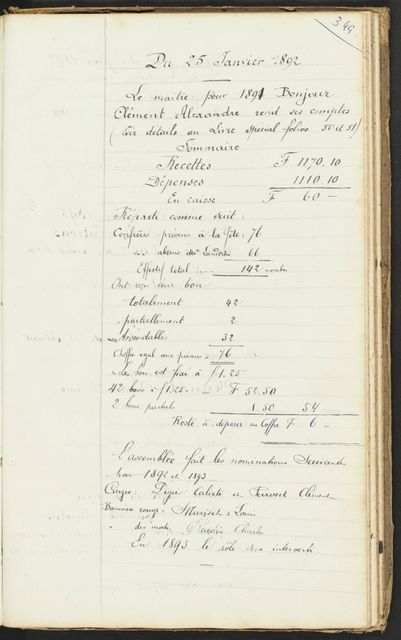 349
Du 25 Janvier 1892
Le maître pour 1891 Bonjour
Clément Alexandre rend ses comptes
(Voir détails au Livre spécial folios 50 et 51)
Sommaire
Recettes F 1170.10
Dépenses 1110 10
En caisse F 60 —
Réparti comme suit:
Confrères présens à la fête: 76
66
Effectif total 142 membres
Ont reçu un bon
totalement 42
partiellement 2
32
Chiffre égal aux présens = 76
Le bon est fixé à f 1.25
42 bons à f 1.25 F 52.50
2 bons partiel 1.50 54 —
Reste à déposer au Coffre F 6 —
L'assemblée fait les nominations Suivantes
pour 1892 et 1893
Calixte et Clément
Bannière rouge: Louis
Charles
En 1893 le rôle sera interverti